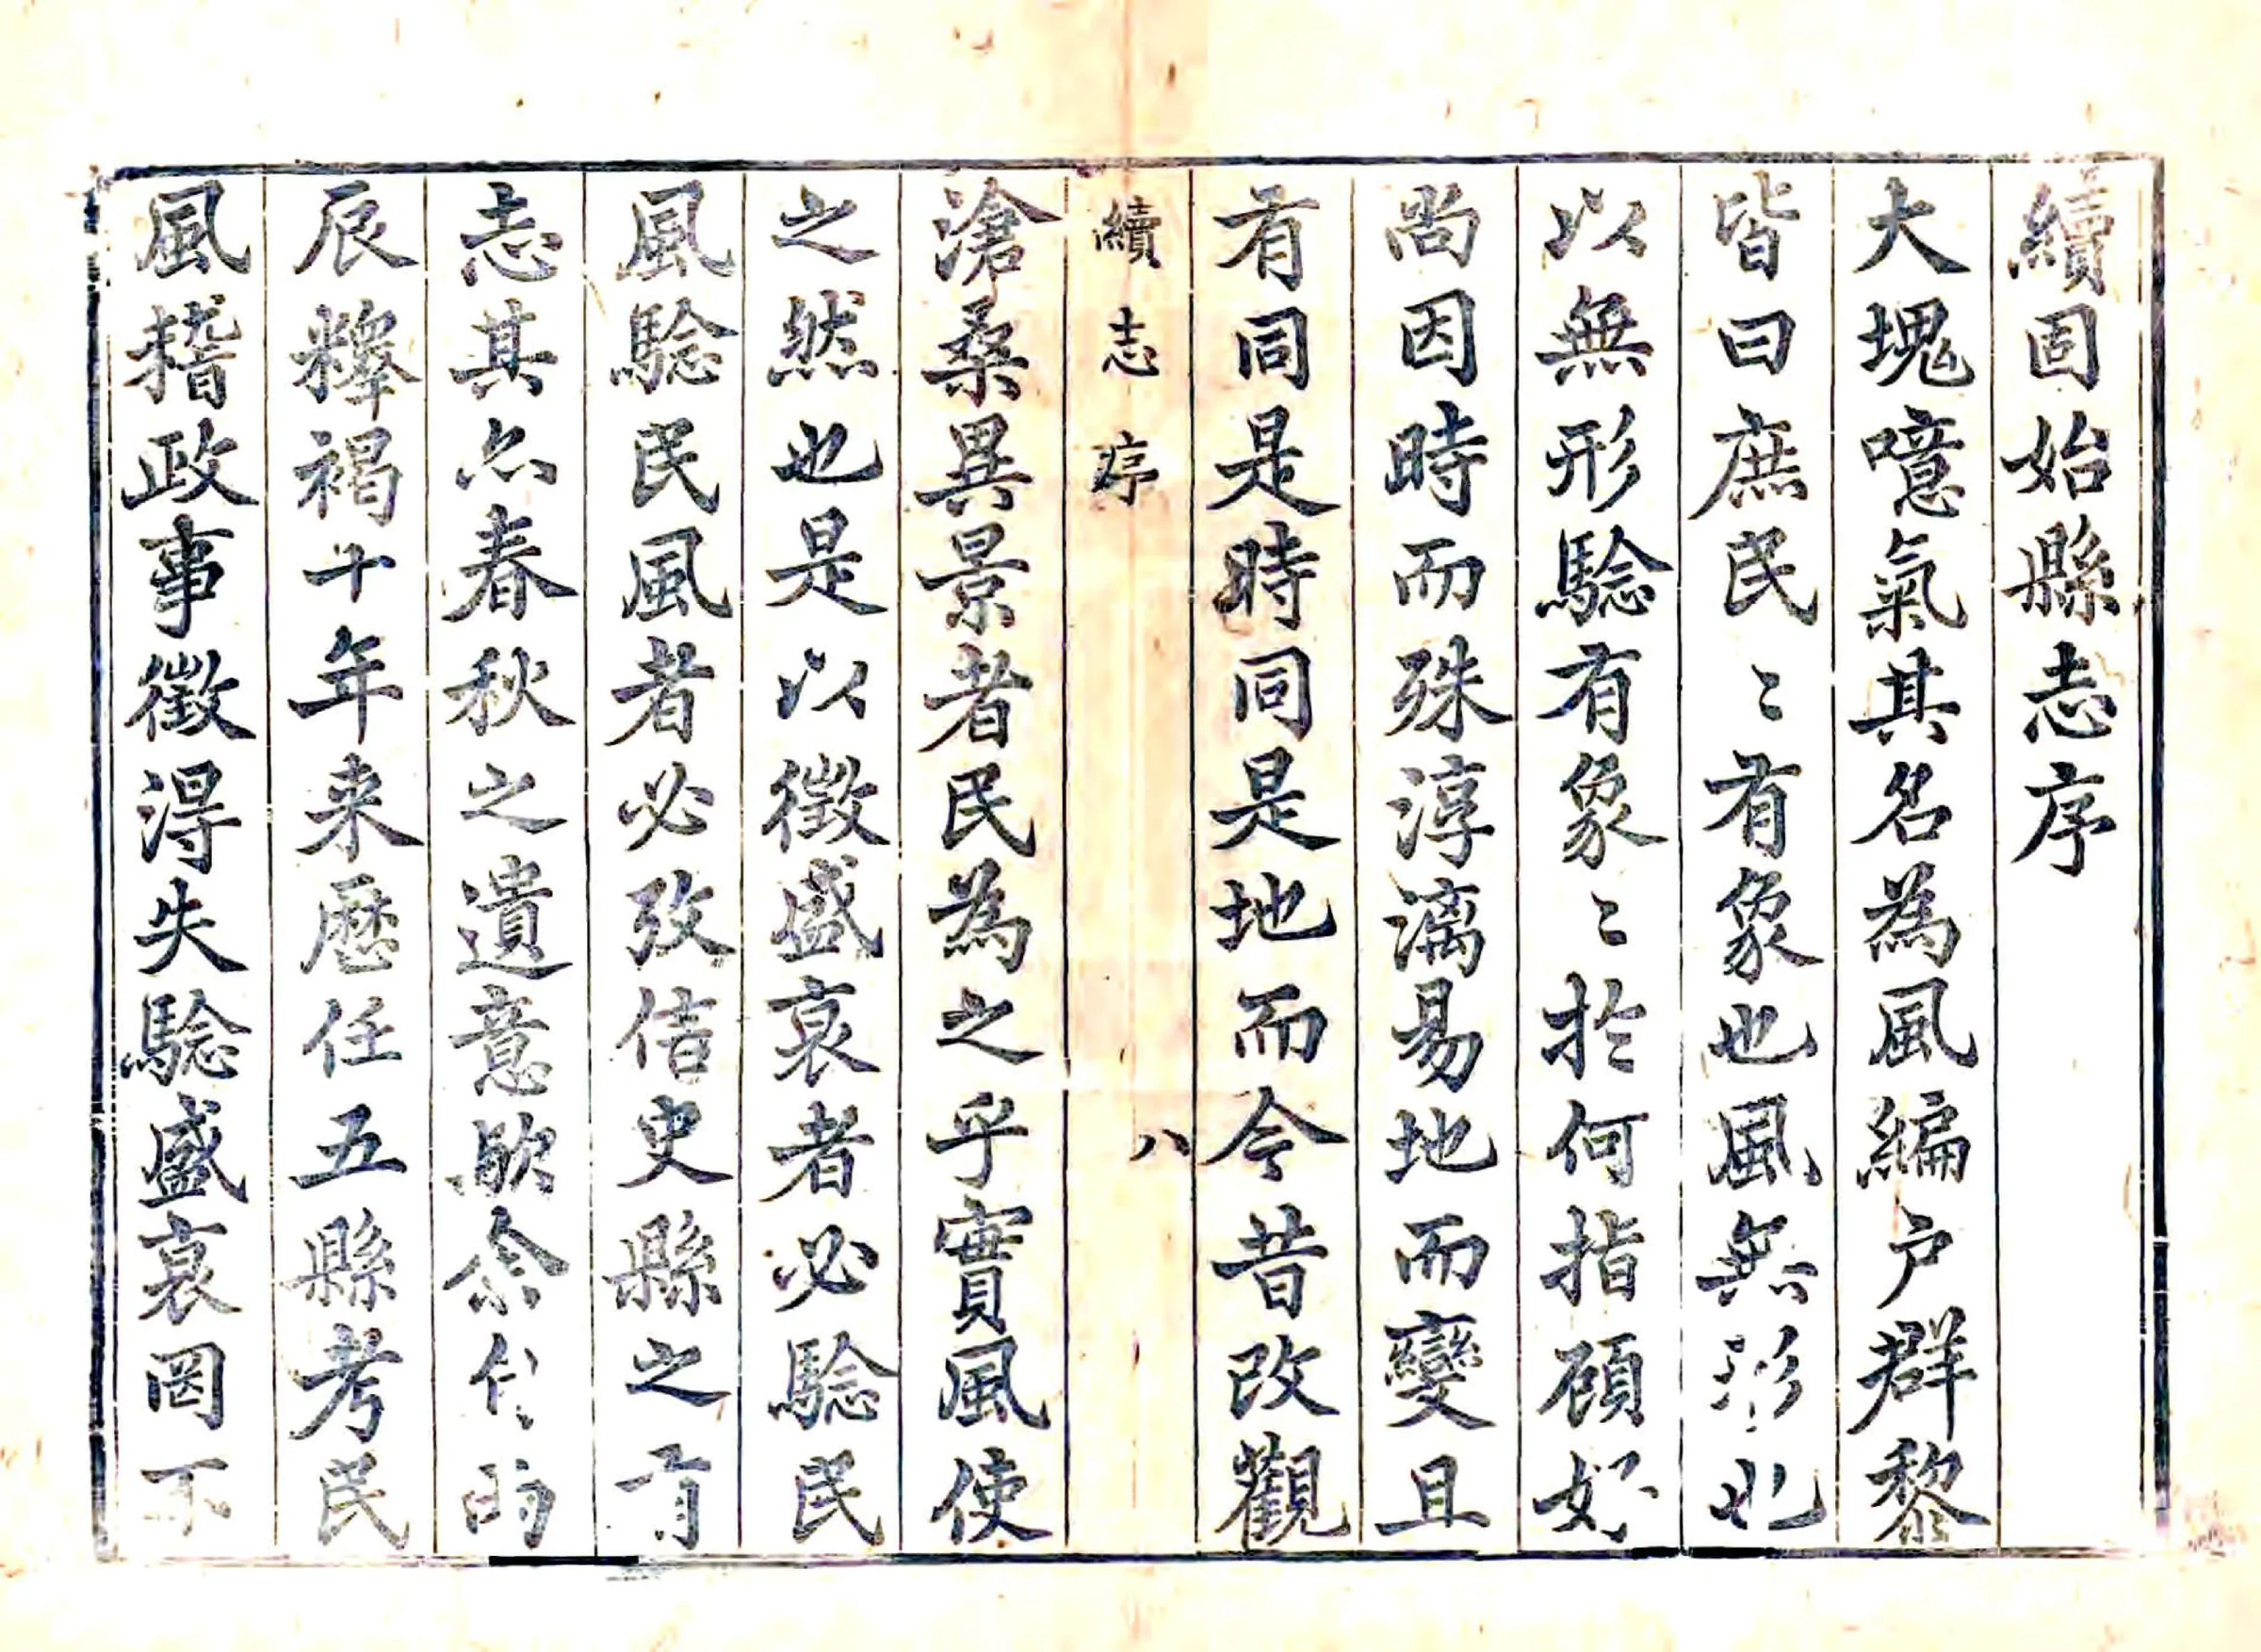 續固始縣志序
大塊噫氣其名為風編户群黎
皆曰庶民〻有象也風無形也
以無形騐有象〻於何指顧好
尚因時而殊淳漓易地而變且
有同是時同是地而今昔改觀
續志序 八
滄桑異景者民為之乎實風使
之然也是以徵盛衰者必騐民
風騐民風者必攷信史縣之有
志其亦春秋之遺意歟余
辰釋褐十年来歷任五縣考民
風稽政事徵淂失騐盛衰罔不